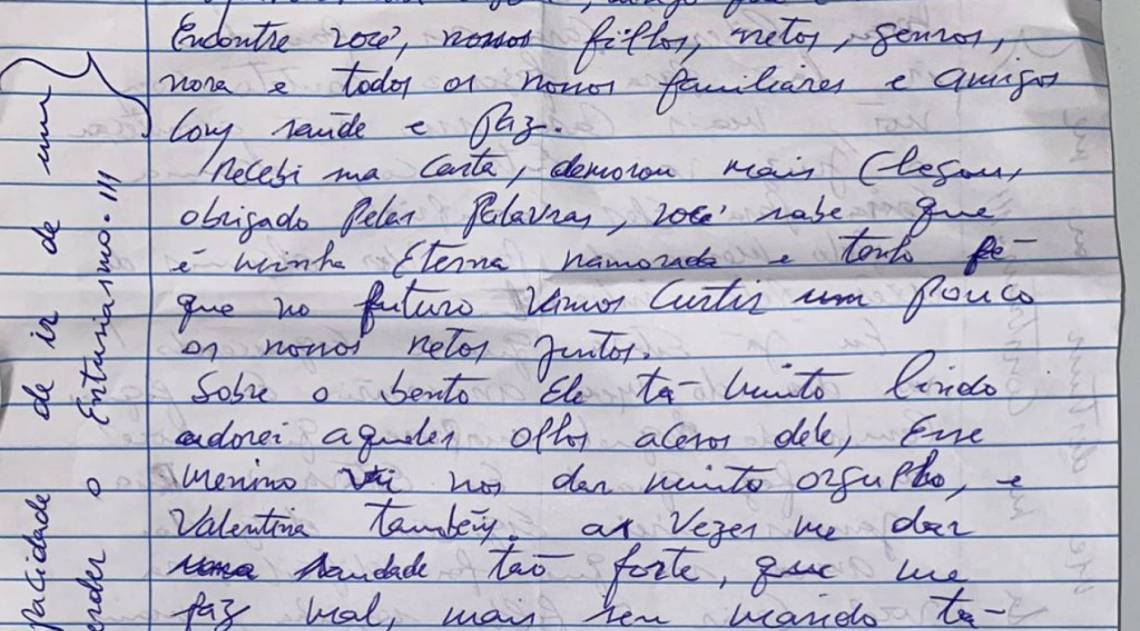 Encontre você, nossos filhos, netos, genros,
nora e todos os nossos familiares e amigos
Com saúde e Paz.
Recebi sua Carta, demorou mais Chegou,
obrigado Pelas Palavras, você sabe que
é minha Eterna namorada e tenho fé
que no futuro Vamos Curtir um Pouco
os nossos netos juntos.
Sobre o bento Ele tá muito lindo
adorei aqueles olhos acesos dele, Esse
menino vai nos dar muito orgulho, e
Valentina também. as Vezes me dar
uma saudade tão forte, que me
faz mal, mais seu marido tá-
pacidade de ir de um
erder o Entusiasmo.!!!